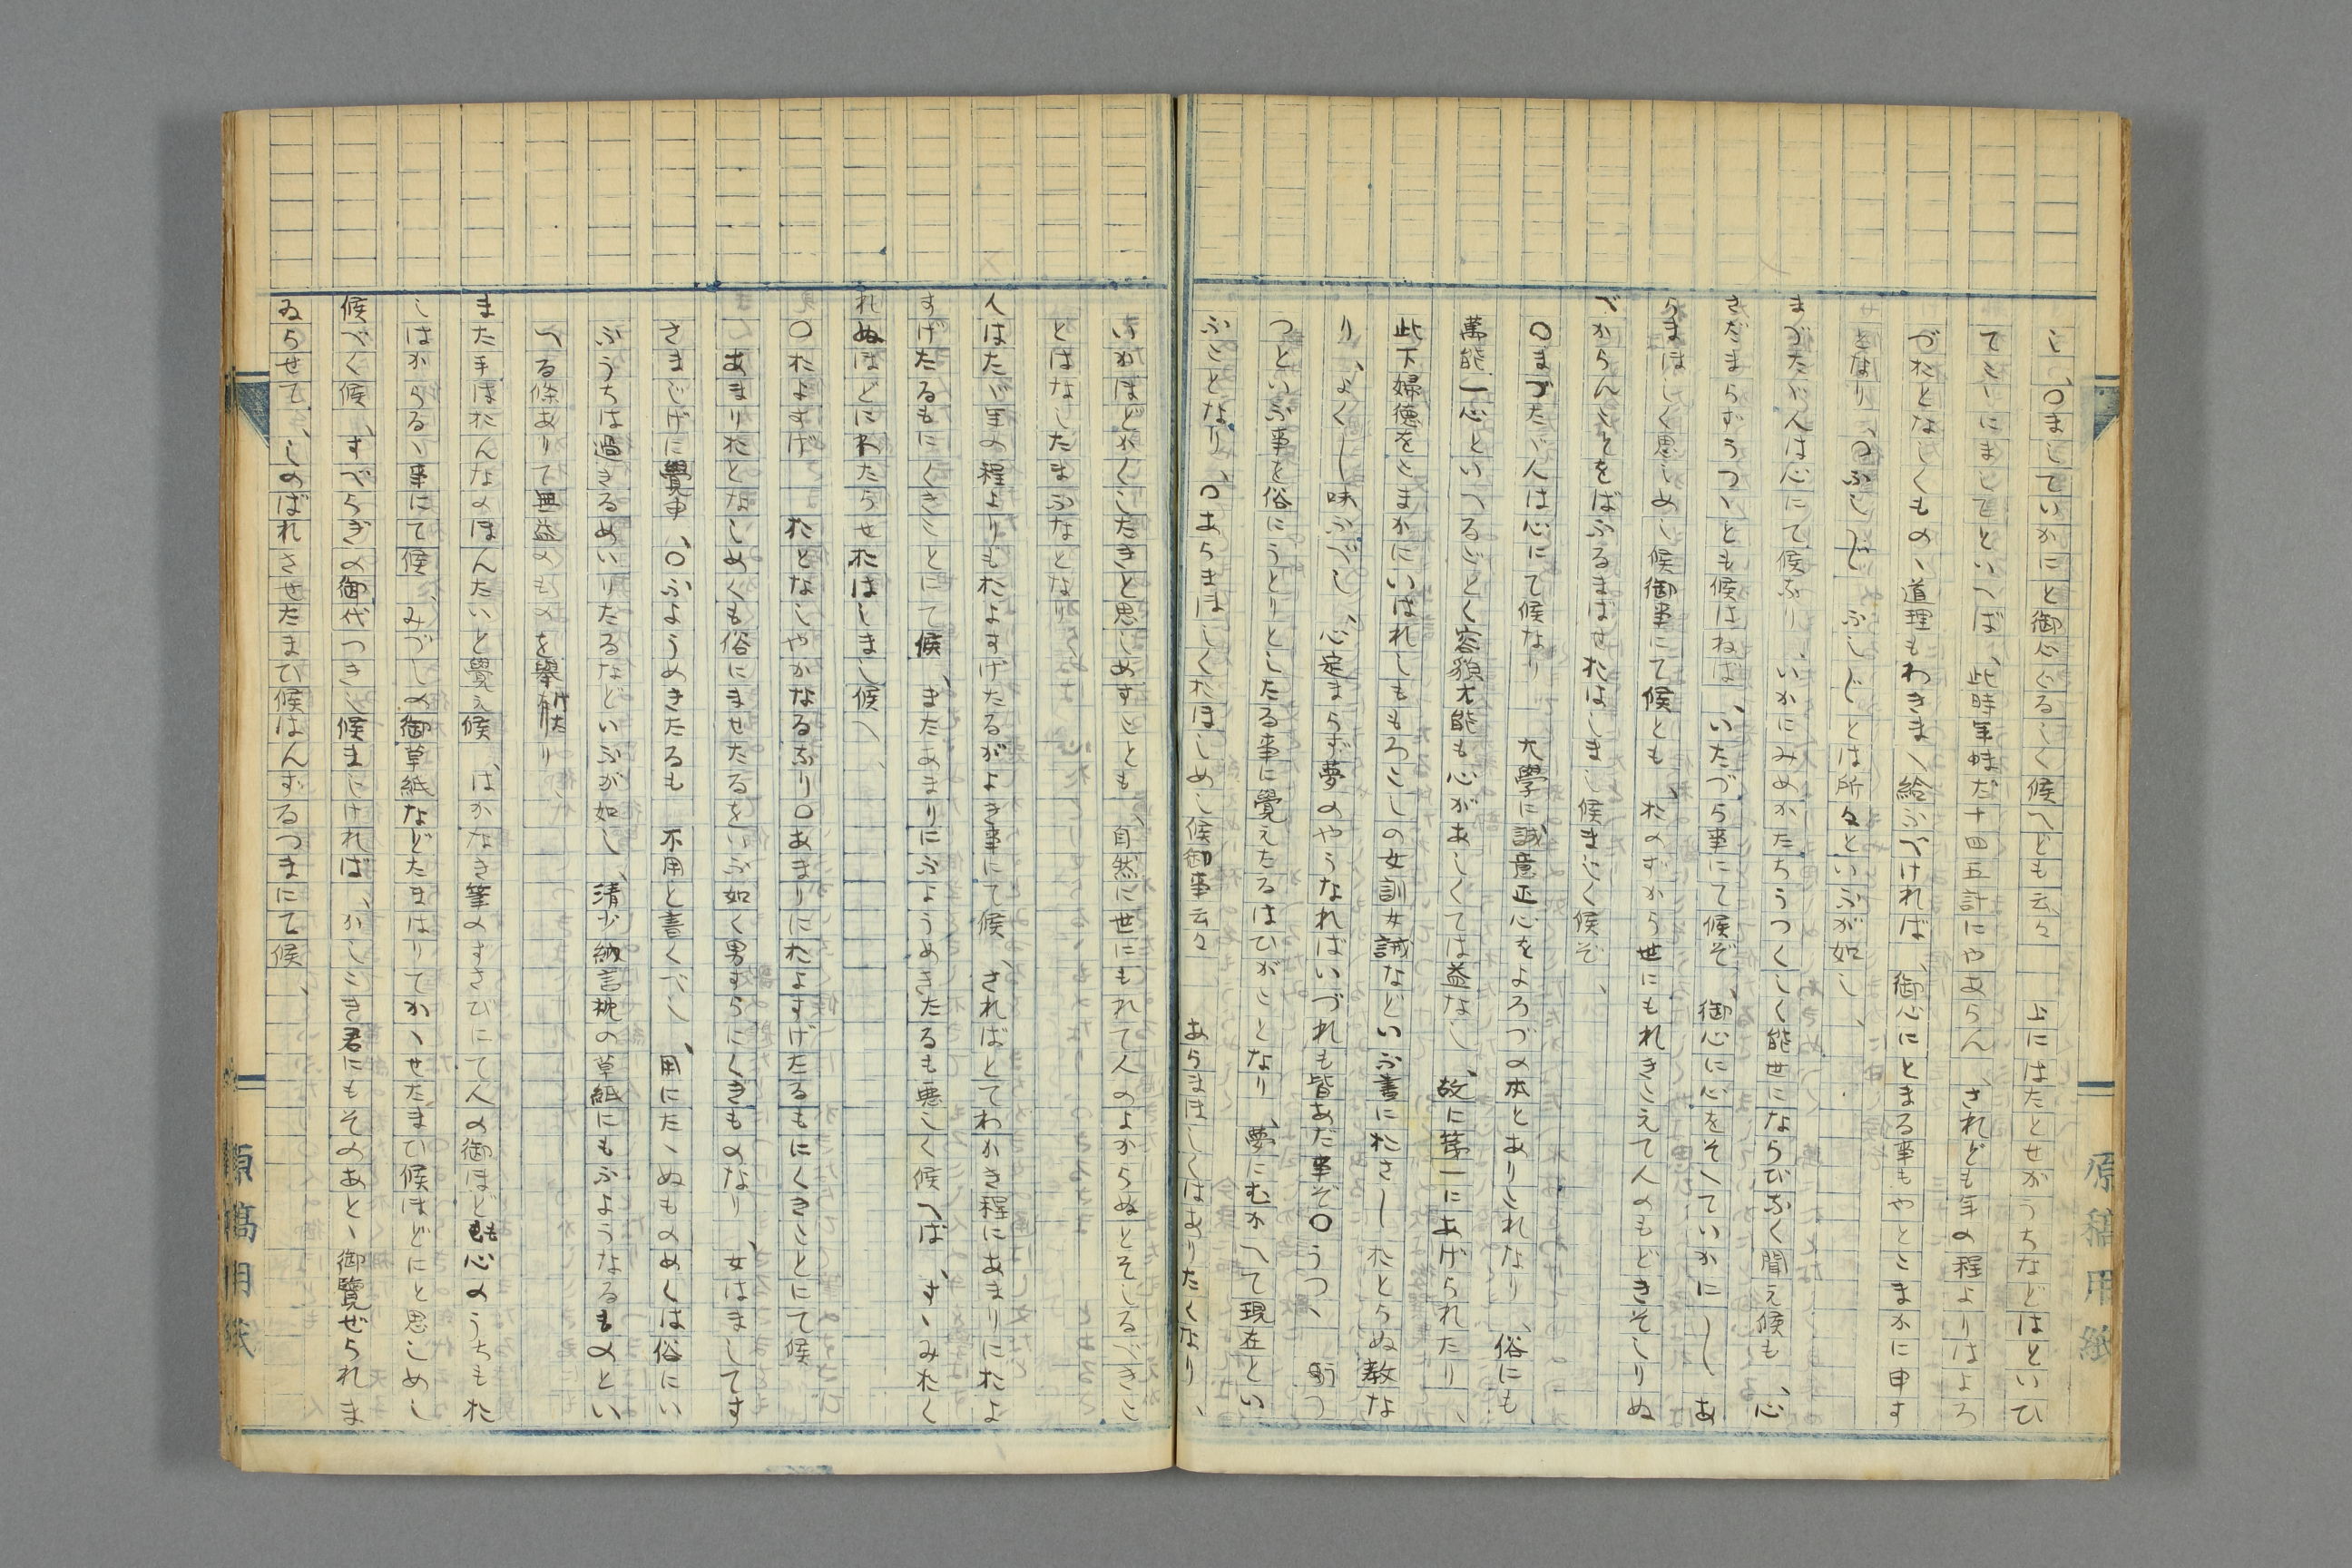 し、〇ましていかにと御心ぐるしく候へども云々　上にはたとせがうちなどはといひ
てこゝにましてといへば、此時年まだ十四五計にやあらん、されども年の程よりはよろ
づおとなしくものゝ道理もわきまへ給ふべければ、御心にとまる事もやとこまかに申す
となり、〇ふしゞ　ふしゞとは所々といふが如し、
まづたゞ人は心にて候ふ、いかにみめかたちうつくしく能世にならびなく聞え候も、心
さだまらずうつゝとも候はねば、いたづら事にて候ぞ、御心に心をそへていかにしゝあ
らまほしく思しめし候御事にて候とも、おのずから世にもれきこえて人のもどきそしりぬ
べからんことをばふるまはせおはしまし候まじく候ぞ、
〇まづたゞ人は心にて候なり　大學に誠意正心をよろづの本とありこれなり、俗にも
萬能一心といへるごとく容貌才能も心があしくては益なし、故に第一にあげられたり、
此下婦徳をこまかにいはれしももろこしの女訓女誡などいふ書におさ〳〵おとらぬ教な
り、よくし味ふべし、心定まらず夢のやうなればいづれも皆あた事ぞ〇うつゝ　うつ
つといふ事を俗にうとりとしたる事に覺えたるはひがことなり、夢にむかへて現在とい
ふことなり、〇あらまほしくおぼしめし候御事云々　あらまほしくはありたくなり、
いかほどかくしたきと思しめすことも、自然に世にもれて人のよからぬとそしるべきこ
とはなしたまふなとなり
人はたゞ年の程よりもおよすげたるがよき事にて候、さればとてわかき程にあまりにおよ
すげたるもにくきことにて候、またあまりにふようめきたるも悪しく候へば、すゝみおく
れぬほどにわたらせおはしまし候へ、
〇およすげ　おとなしやかなるなり〇あまりにおよすげたるもにくきことにて候
あまりおとなしめくも俗にませたるをいふ如く男すらにくきものなり、女はましてす
さまじげに覺ゆ、〇ふようめきたるも　不用と書くべし、用にたゝぬものめくは俗にい
ふうちは過きるめいりたるなどいふが如し、清少納言枕の草紙にもふようなるものとい
へる條ありて無益のものを擧げたり
また手はおんなのほんたいと覺え候、はかなき筆のすさびにて人の御ほども心のうちもお
しはからるゝ事にて候、みづしの御草紙などたまはりてかゝせたまひ候ほどにと思しめし
候べく候、すべらぎの御代つきし候まじければ、かしこき君にもそのあとゝ御覽ぜられま
ゐらせて、しのばれさせたまひ候はんずるつまにて候、
原稿用紙
原稿用紙